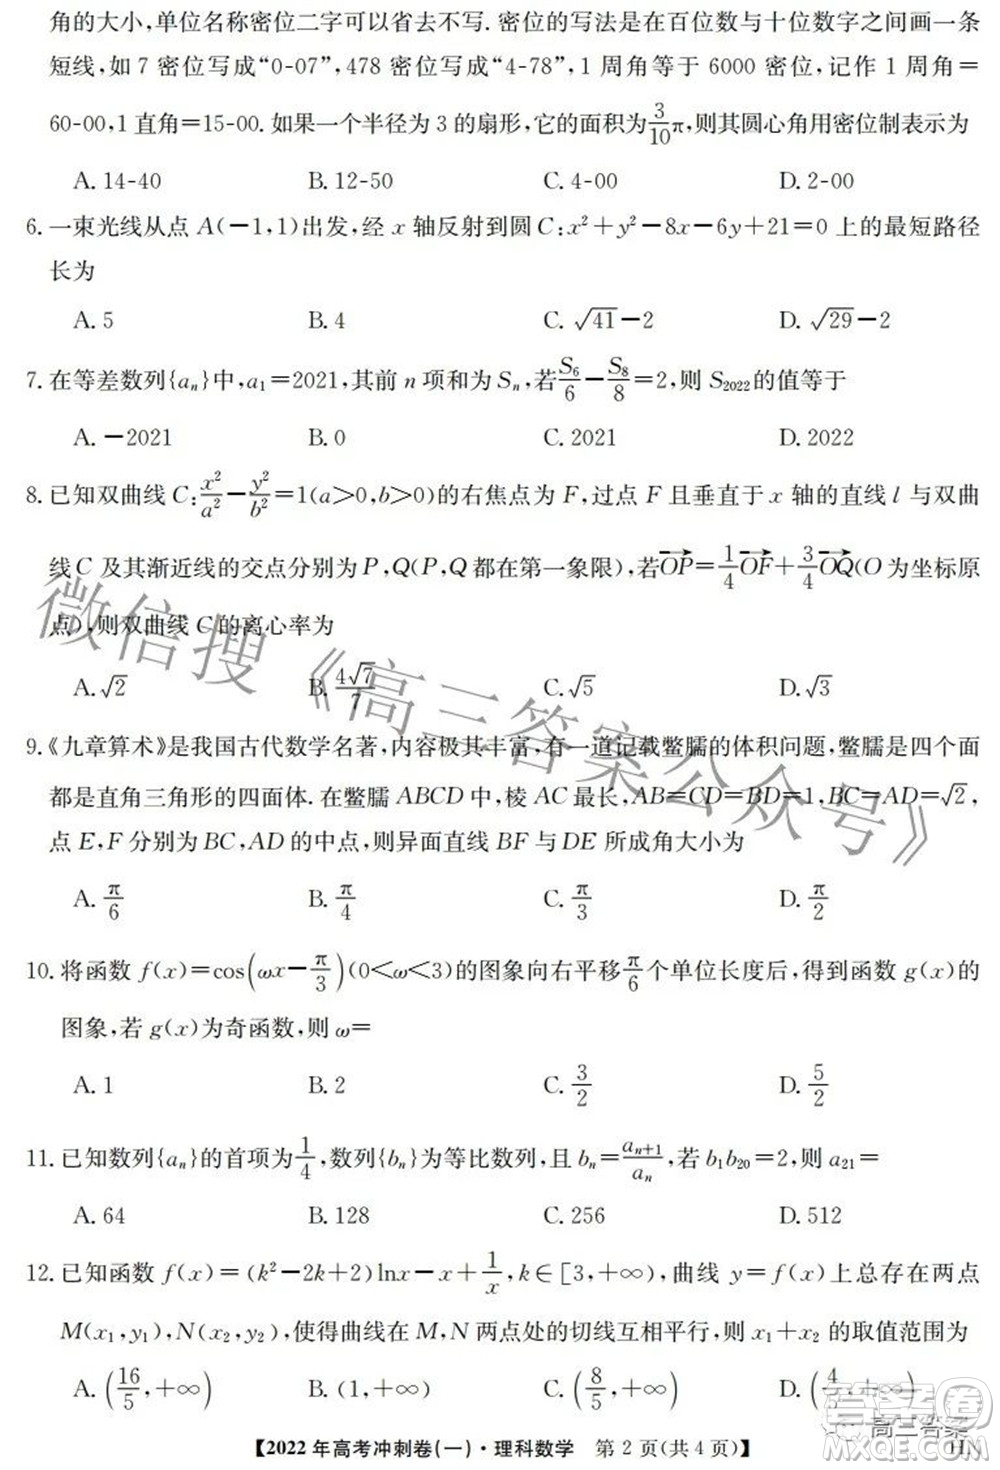 角的大小,单位名称密位二字可以省去不写. 密位的写法是在百位数与十位数字之间画一条
短线,如 7 密位写成“0-07”,478 密位写成“4-78”,1 周角等于 6000 密位,记作 1 周角=
60-00,1 直角=15-00. 如果一个半径为 3 的扇形,它的面积为3/10π,则其圆心角用密位制表示为
A. 14-40 B. 12-50 C. 4-00 D. 2-00
6. 一束光线从点 A(-1,1)出发,经 x 轴反射到圆 C:x²+y²-8x-6y+21=0 上的最短路径
长为
A. 5 B. 4 C. √41-2 D. √29-2
7. 在等差数列{aₙ}中,a₁=2021,其前 n 项和为 Sₙ,若S₆/6-S₈/8=2,则 S₂₀₂₂的值等于
A. -2021 B. 0 C. 2021 D. 2022
8. 已知双曲线 C:x²/a²-y²/b²=1(a>0,b>0)的右焦点为 F,过点 F 且垂直于 x 轴的直线 l 与双曲
线 C 及其渐近线的交点分别为 P,Q(P,Q 都在第一象限),若OP→=1/4OF→+3/4OQ→(O 为坐标原
点),则双曲线 C 的离心率为
A. √2 B. 4√7/7 C. √5 D. √3
9.《九章算术》是我国古代数学名著,内容极其丰富,有一道记载鳖臑的体积问题,鳖臑是四个面
都是直角三角形的四面体. 在鳖臑 ABCD 中,棱 AC 最长,AB=CD=BD=1,BC=AD=√2,
点 E,F 分别为 BC,AD 的中点,则异面直线 BF 与 DE 所成角大小为
A. π/6 B. π/4 C. π/3 D. π/2
10. 将函数 f(x)=cos(ωx-π/3)(0<ω<3)的图象向右平移π/6个单位长度后,得到函数 g(x)的
图象,若 g(x)为奇函数,则 ω=
A. 1 B. 2 C. 3/2 D. 5/2
11. 已知数列{aₙ}的首项为1/4,数列{bₙ}为等比数列,且 bₙ=aₙ₊₁/aₙ,若 b₁b₂₀=2,则 a₂₁=
A. 64 B. 128 C. 256 D. 512
12. 已知函数 f(x)=(k²-2k+2)lnx-x+1/x,k∈[3,+∞),曲线 y=f(x)上总存在两点
M(x₁,y₁),N(x₂,y₂),使得曲线在 M,N 两点处的切线互相平行,则 x₁+x₂ 的取值范围为
A. (16/5,+∞) B. (1,+∞) C. (8/5,+∞) D. (4/5,+∞)
【2022 年高考冲刺卷(一)·理科数学 第 2 页(共 4 页)】 HN
微信搜《高三答案公众号》
答案卷
高三答案